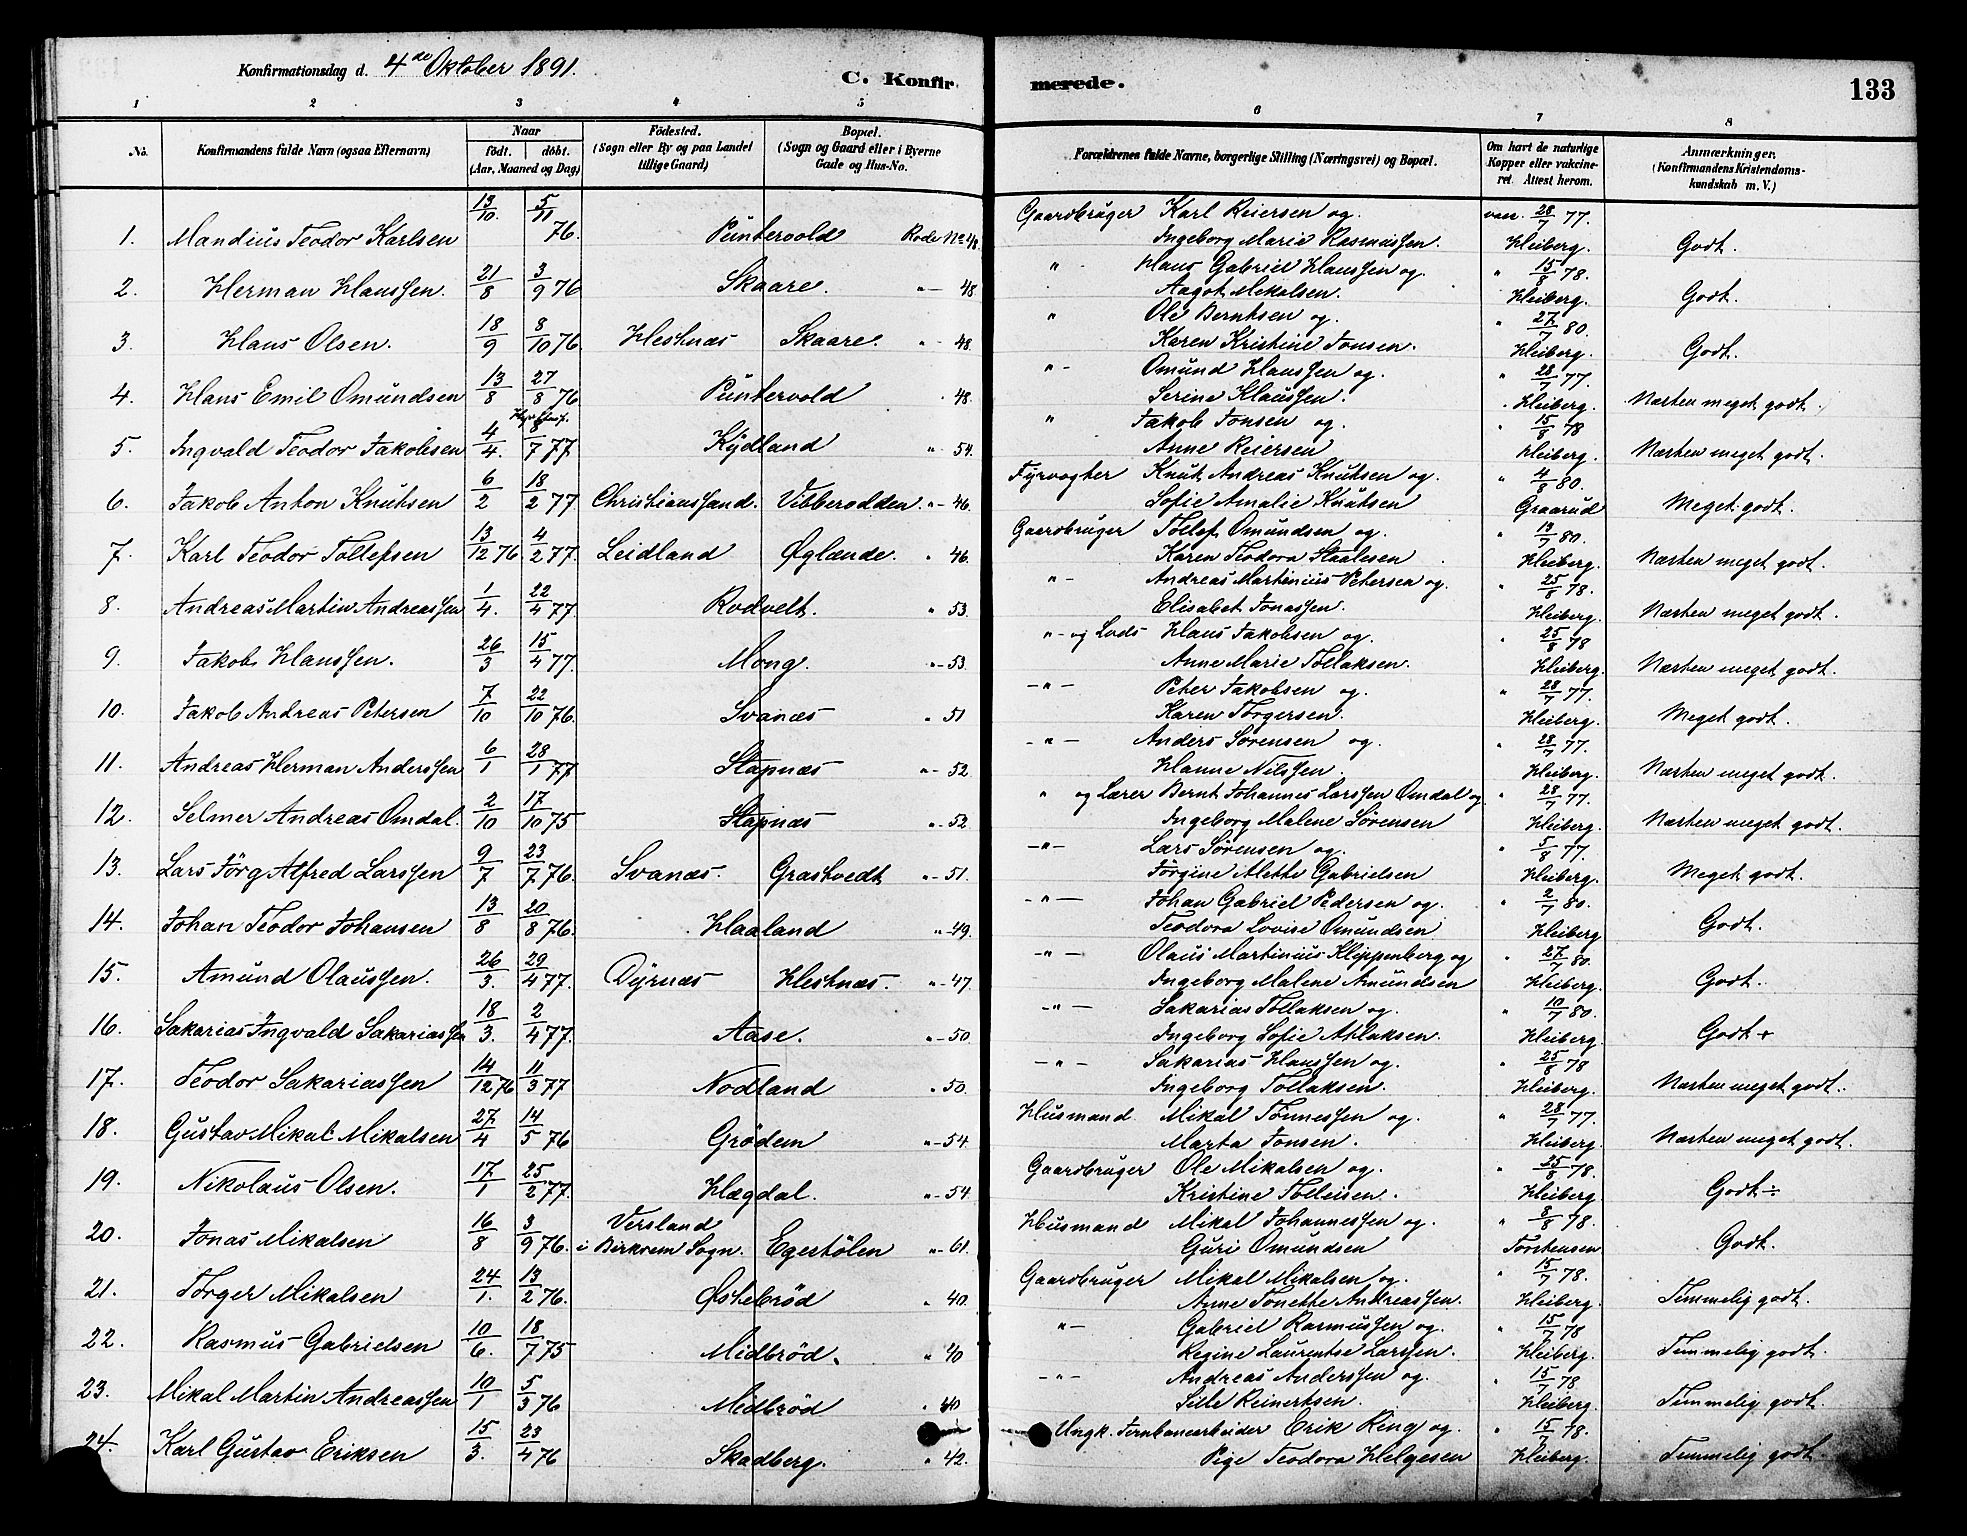 Konfirmationsdag d. 4de Oktober 1891. C. Konfirmerede. 133
1 2 3 4 5 6 7 8
No. Konfirmandens fulde Navn (ogsaa Efternavn) Naar födt. döbt. (Aar, Maaned og Dag) Födested. (Sogn eller By og paa Landet tillige Gaard) Bopæl. (Sogn og Gaard eller i Byerne Gade og Hus-No. Forældrenes fulde Navne, borgerlige Stilling (Næringsvei) og Bopæl. Om havt de naturlige Kopper eller vakcineret. Attest herom. Anmærkninger. (Konfirmandens Kristendomskundskab m. V.)
1. Mandius Teodor Karlsen 13/10. 5/11 76. Puntervold Rode No 48. Gaardbruger Karl Reiersen og vacc. 28/7 77.
Ingeborg Marie Rasmussen. Kleiberg. Godt.
2. Herman Hanssen. 21/8 3/9 76 Skaare. "— 48 " Hans Gabriel Hanssen og " 15/8 78.
Aagot Mikalsen. Kleiberg. Godt.
3. Hans Olsen. 18/9 8/10 76 Hestnæs Skaare. " - 48. " Ole Berntsen og. " 27/7 80.
Karen Kristine Tonsen. Kleiberg. Godt.
4. Hans Emil Omundsen 13/8 27/8 76 Puntervold 48. "- Omund Hanssen og. " 28/7 77.
Serine Klaussen. Kleiberg. Næsten meget godt.
5. Ingvald Teodor Jakobsen 4/4. 8/7 77 Kydland "- 54. " Jakob Jonsen og. " 15/8 78
Anne Reiersen Kleiberg. Næsten meget godt.
6. Jakob Anton Knutsen 6/2 18/2 77. Christianssand. Vibberodden. "- 46. Fyrvogter Knut Andreas Knutsen og. " 4/8 80.
Sofie Amalie Knutsen Graarud Meget godt.
7. Karl Teodor Tollefsen 13/12 76 4/2 77. Leidland Øglænde. " 46. Gaardbruger Tollef Omundsen og. " 13/7 80.
Karen Teodora Staalesen Kleiberg. Næsten meget godt.
8. Andreas Martin Andreassen 1/4. 22/4 77. Rodvelt. " 53. "- Andreas Martinius Petersen og. " 25/8 78.
Elisabet Jonassen. Kleiberg. Næsten meget godt.
9. Jakob Hanssen. 26/3 15/4 77. Mong. "- 53. "- og Lods Hans Jakobsen og. " 25/8 78
Anne Marie Tollaksen. Kleiberg. Næsten meget godt.
10. Jakob Andreas Petersen 7/10 22/10 76. Svanæs " 51 —"— Peter Jakobsen og. " 28/7 77.
Karen Torgersen. Kleiberg. Meget godt.
11. Andreas Herman Anderssen 6/1 28/1 77 Stapnæs "- 52. —"— Anders Sørensen og. " 28/7 77.
Hanne Nilssen. Kleiberg. Næsten meget godt.
12. Selmer Andreas Omdal. 2/10 17/10 75 Stapnæs "- 52. " og Lærer Bernt Johannes Larssen Omdal og " 28/7 77.
Ingeborg Malene Sørensen Kleiberg. Næsten meget godt.
13. Lars Jörg Alfred Larssen 9/7 23/7 76. Svanæs. Grastvedt "- 51. —"— Lars Sørensen og. " 5/8 77.
Jörgine Alette Gabrielsen Kleiberg. Meget godt.
14. Johan Teodor Johansen 13/8 20/8 76. Haaland "- 49. —"— Johan Gabriel Pedersen og. " 2/7 80.
Teodora Lovise Omundsen Kleiberg Godt.
15. Amund Olaussen. 26/3. 29/4 77. Dyrnæs Hestnæs. "- 47. —"— Olaus Martinius Klippenberg og " 27/7 80.
Ingeborg Malene Amundsen Kleiberg. Godt.
16. Sakarias Ingvald Sakariassen 18/3. 2/4 77. Aase. "- 50. —"— Sakarias Tollaksen og. " 10/7 80.
Ingeborg Sofie Atlaksen. Kleiberg. Godt +
17. Teodor Sakariassen 14/12 76 11/3 77 Nodland " 50. —"— Sakarias Hanssen og. " 25/8 78
Ingeborg Tollaksen. Kleiberg. Næsten meget godt.
18. Gustav Mikal Mikalsen 27/4 14/5 76 Grödem "- 54 Husmand. Mikal Tönnessen og. " 28/7 77.
Marta Jonsen. Kleiberg. Næsten meget godt.
19. Nikolaus Olsen. 17/1 25/2 77. Hægdal. "- 54. Gaardbruger Ole Mikalsen og. " 25/8 78.
Kristine Tolleisen. Kleiberg. Godt ÷
20. Jonas Mikalsen 16/8 3/9 76. Versland i Birkrem Sogn. Egestölen "- 61. Husmand Mikal Johannessen og. " 8/8 78.
Guri Omundsen Torstensen. Godt.
21. Törger Mikalsen 24/1. 13/2 76. Østebrød " 40. Gaardbruger Mikal Mikalsen og. " 15/7 78.
Anne Tonette Andreassen. Kleiberg. Temmelig godt.
22. Rasmus Gabrielsen 10/6. 18/7 75 Midbrød. " 40 "- Gabriel Rasmussen og. " 15/7 78
Regine Laurentse Larssen. Kleiberg. Temmelig godt.
23. Mikal Martin Andreassen 10/1 5/3 76 Midbrød " 40 —"— Andreas Anderssen og. 15/7 78
Sille Reinertsen. Kleiberg. Temmelig godt.
24. Karl Gustav Eriksen 15/3. 23/4 76 Skadberg. " 42. Ungk. Jernbanearbeider Erik Ring og. " 15/7 78.
Pige Teodora Helgesen Kleiberg. Temmelig godt.